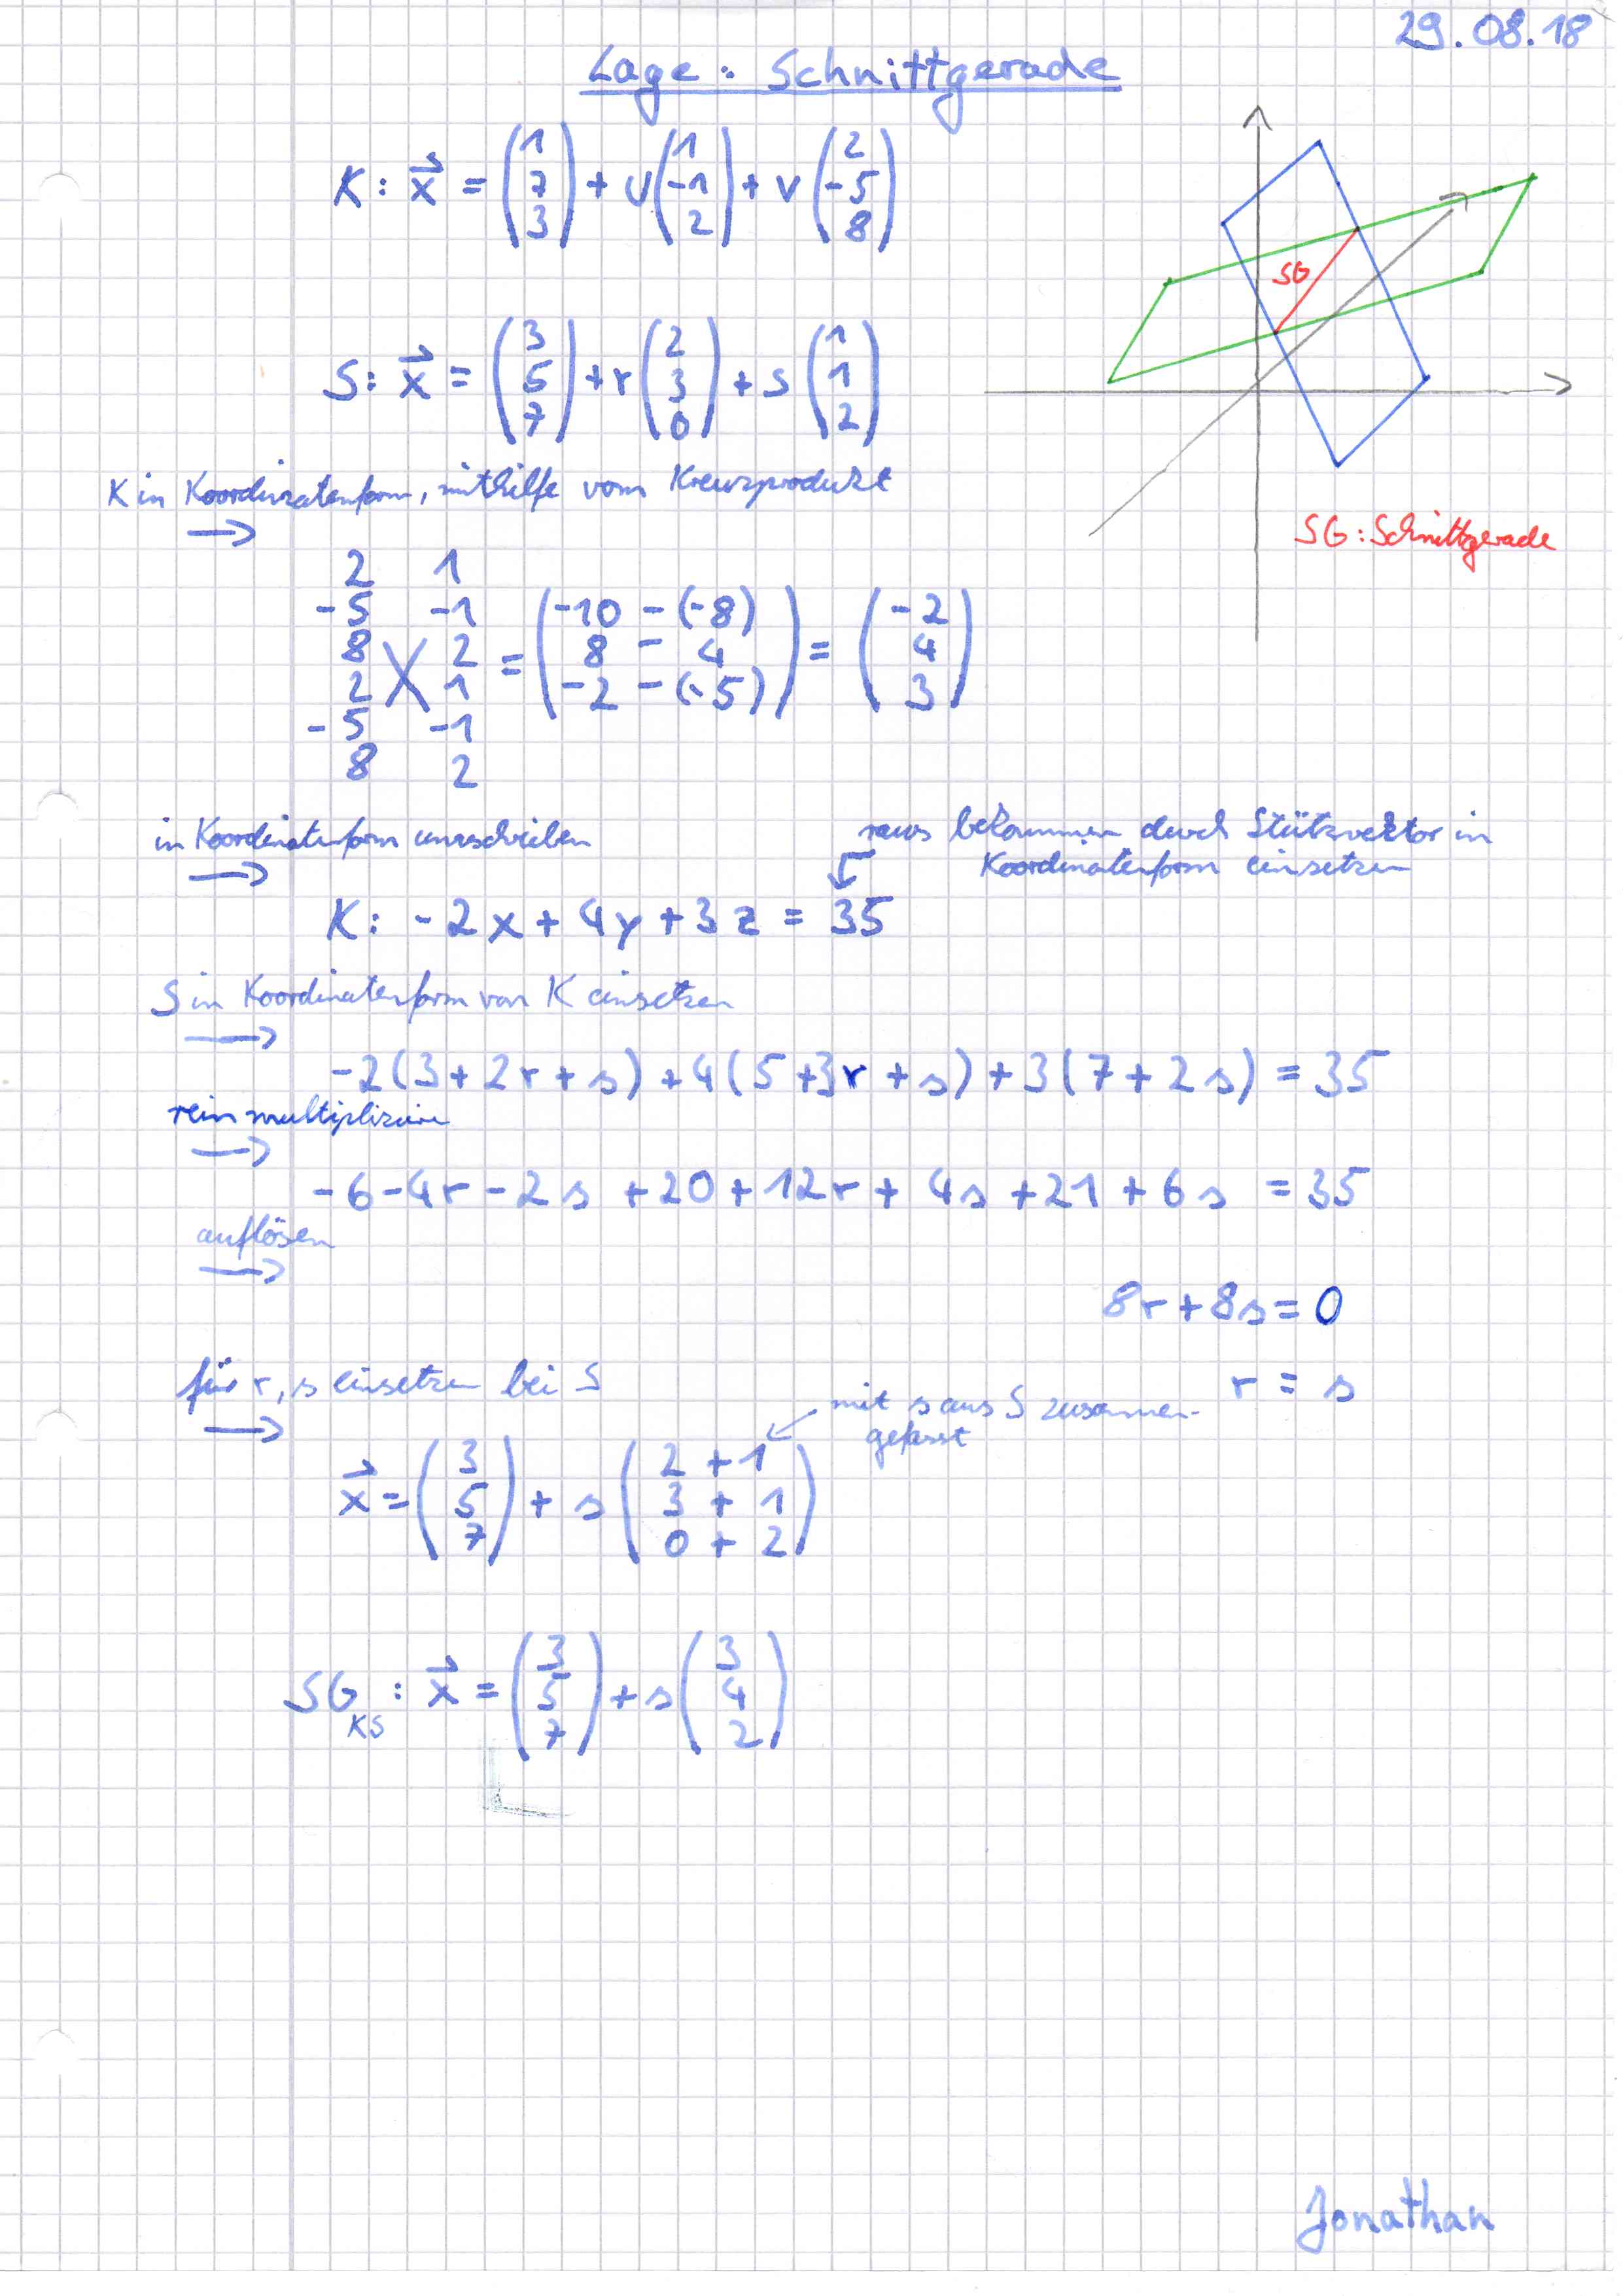 29.08.18
Lage: Schnittgerade
K: x⃗ = (1 7 3) + u (1 -1 2) + v (2 -5 8)
SG
S: x⃗ = (3 5 7) + r (2 3 0) + s (1 1 2)
K in Koordinatenform, mithilfe vom Kreuzprodukt
→
SG: Schnittgerade
2 1
-5 -1
8 2
2 X 1 = (-10 - (-8) 8 - 4 -2 - (-5)) = (-2 4 3)
-5 -1
8 2
in Koordinatenform umschreiben
→
raus bekommen durch Stützvektor in
Koordinatenform einsetzen
K: -2x + 4y + 3z = 35
S in Koordinatenform von K einsetzen
→
-2(3 + 2r + s) + 4(5 + 3r + s) + 3(7 + 2s) = 35
rein multiplizieren
→
-6 - 4r - 2s + 20 + 12r + 4s + 21 + 6s = 35
auflösen
→
8r + 8s = 0
r = s
für r, s einsetzen bei S
→
mit s aus S zusammen-
gefasst
x⃗ = (3 5 7) + s (2 + 1 3 + 1 0 + 2)
SG KS : x⃗ = (3 5 7) + s (3 4 2)
Jonathan